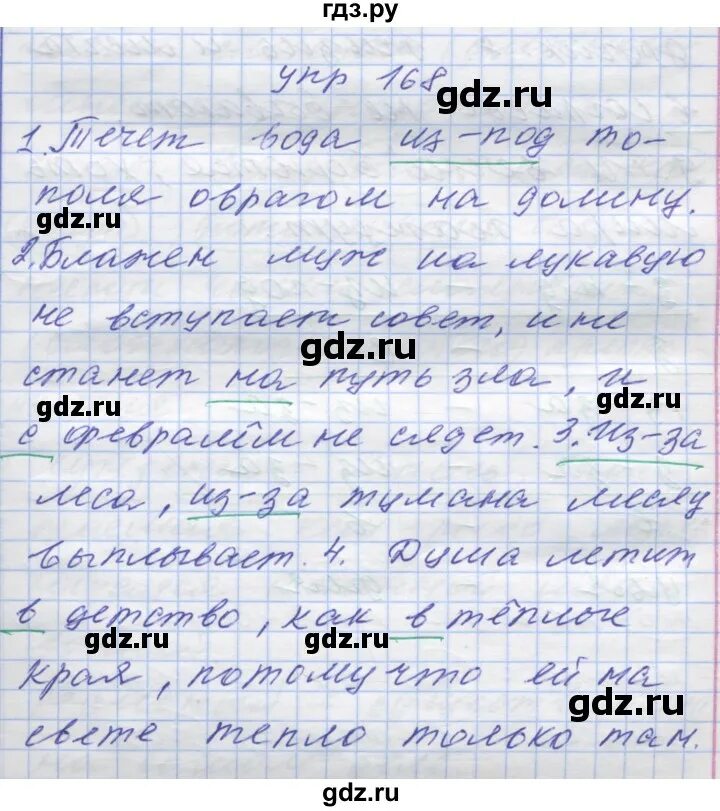 гдз.ру
упр 168
gdz.ru
1. Течет вода из-под то-
поля оврагом на долину.
gdz.ru
2. Блажен муж на лукавую
не вступает совет, и не
gdz.ru
станет на путь зла, и
gdz.ru
с февралём не сядет. 3. Из-за
леса, из-за тумана месяц
gdz.ru
выплывает. 4. Душа летит
в детство, как в тёплые
gdz.ru gdz.ru
края, потому что ей на
gdz.ru
свете тепло только там.
gdz.ru